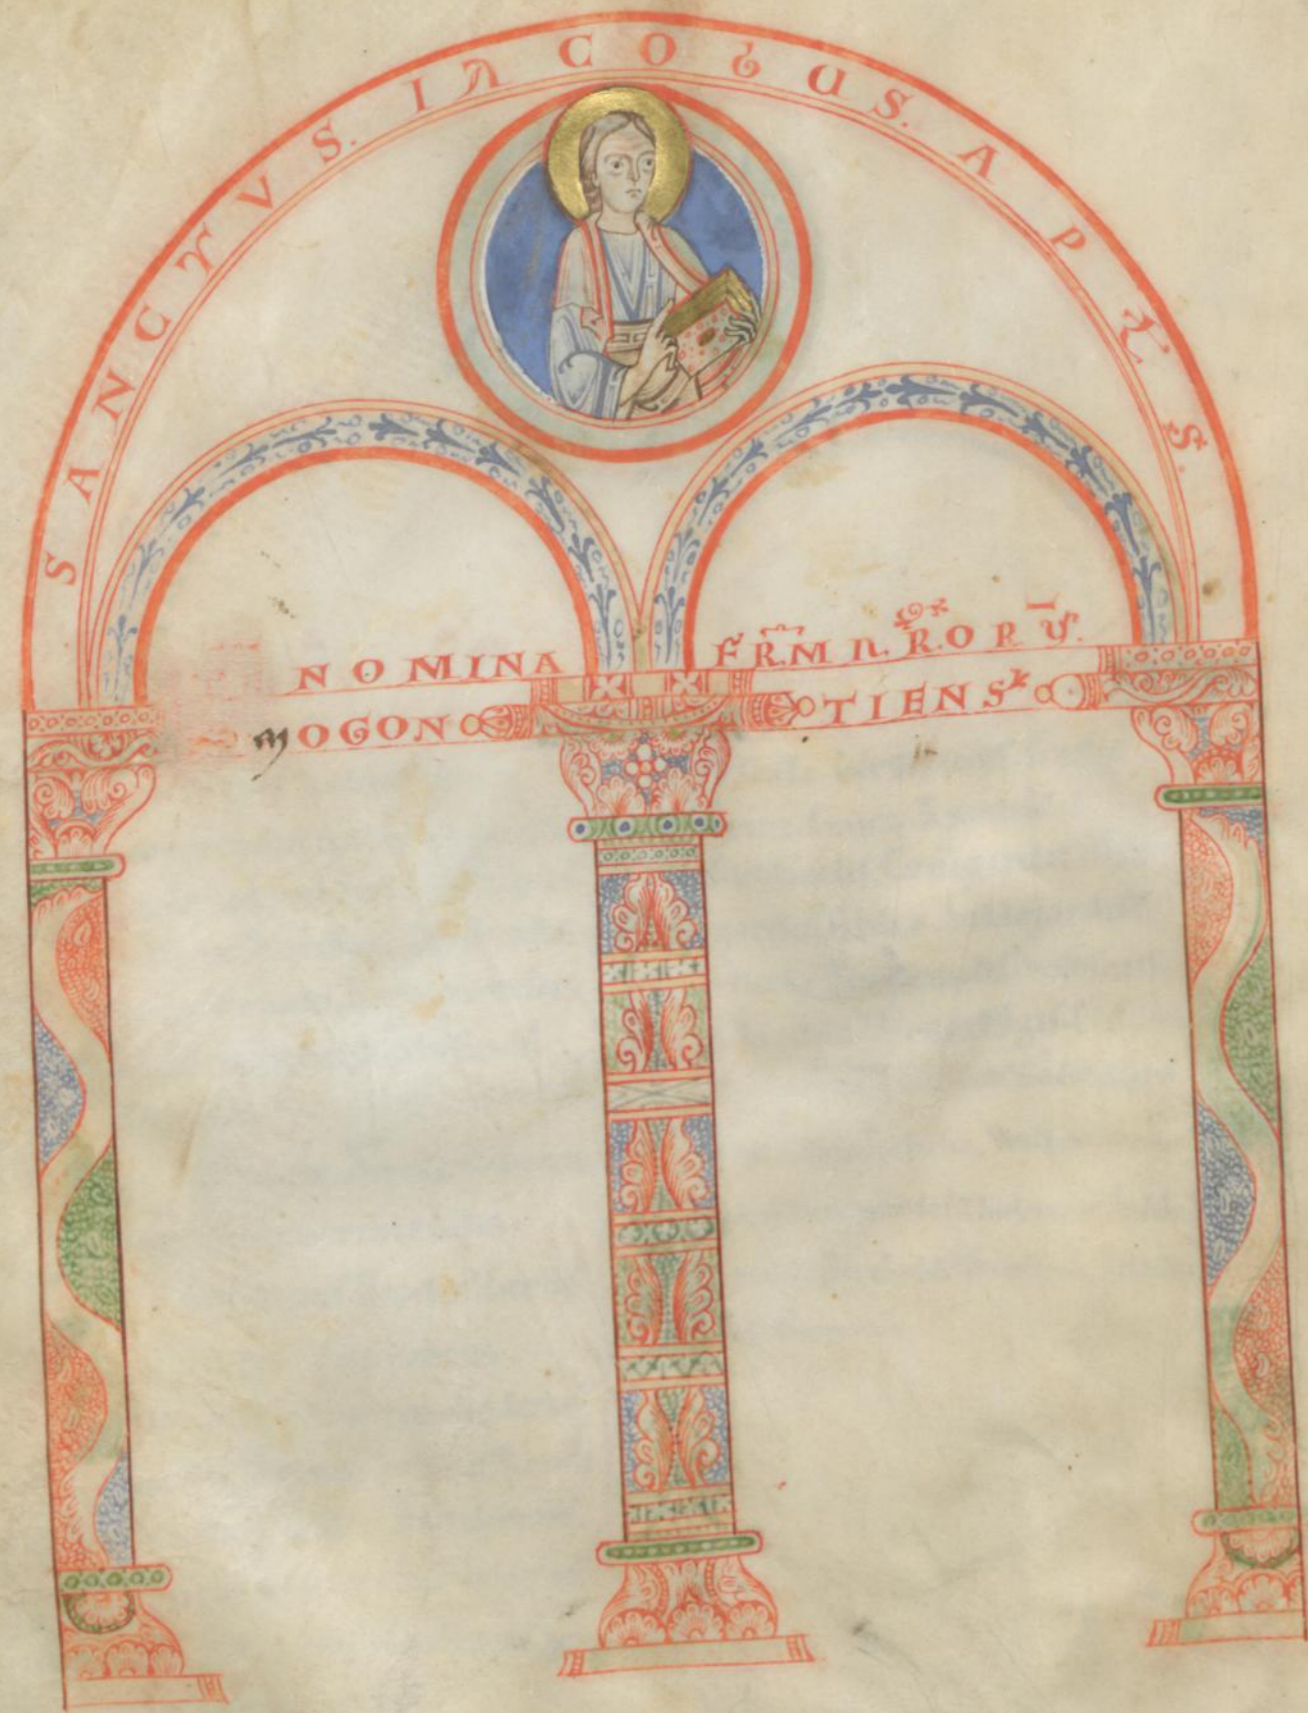 SANCTVS. IACOBUS. APLS.
NOMINA FRM N̄RORŪ.
MOGONTIENS